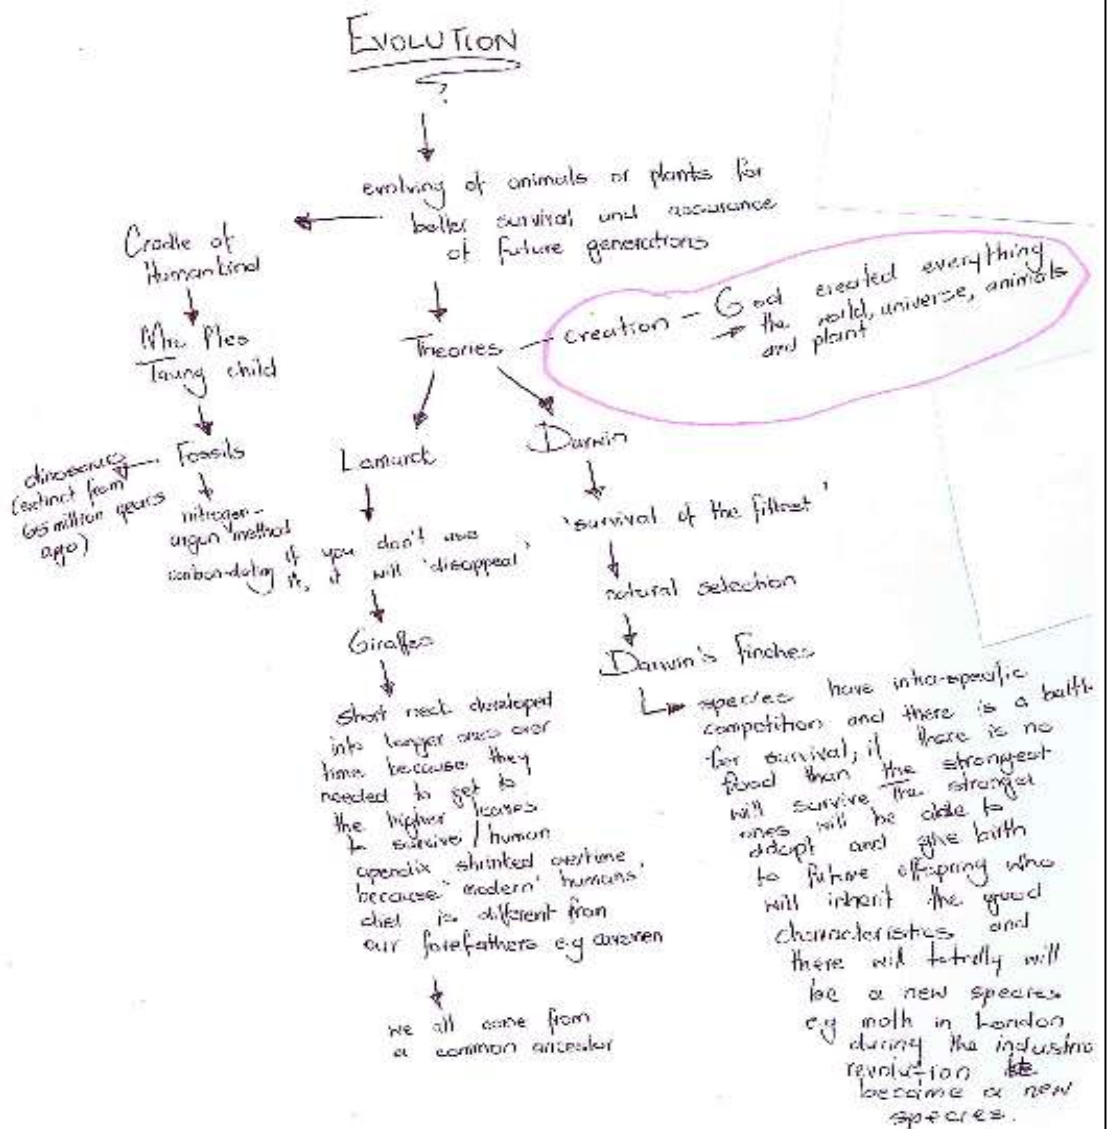 EVOLUTION
?
evolving of animals or plants for
better survival and assurance
of future generations
Cradle of
Humankind
Mrs Ples
Taung child
Fossils
dinosaurus
(extinct from
65 million years
ago)
nitrogen-
argon method
carbon-dating
Theories
creation - God created everything
the world, universe, animals
and plant
Lamarck
if you don't use
it, it will 'disappear'
Giraffes
short neck developed
into longer ones over
time because they
needed to get to
the higher leaves
to survive / human
apendix shrinked overtime
because 'modern' humans'
diet is different from
our forefathers e.g cavemen
we all come from
a common ancestor
Darwin
'survival of the fittest'
natural selection
Darwin's Finches
species have intra-specific
competition and there is a battle
for survival, if there is no
food than the strongest
will survive The stronger
ones will be able to
adapt and give birth
to future offspring who
will inherit the good
characteristics and
there will totally will
be a new species
e.g moth in London
during the industria
revolution
became a new
species.